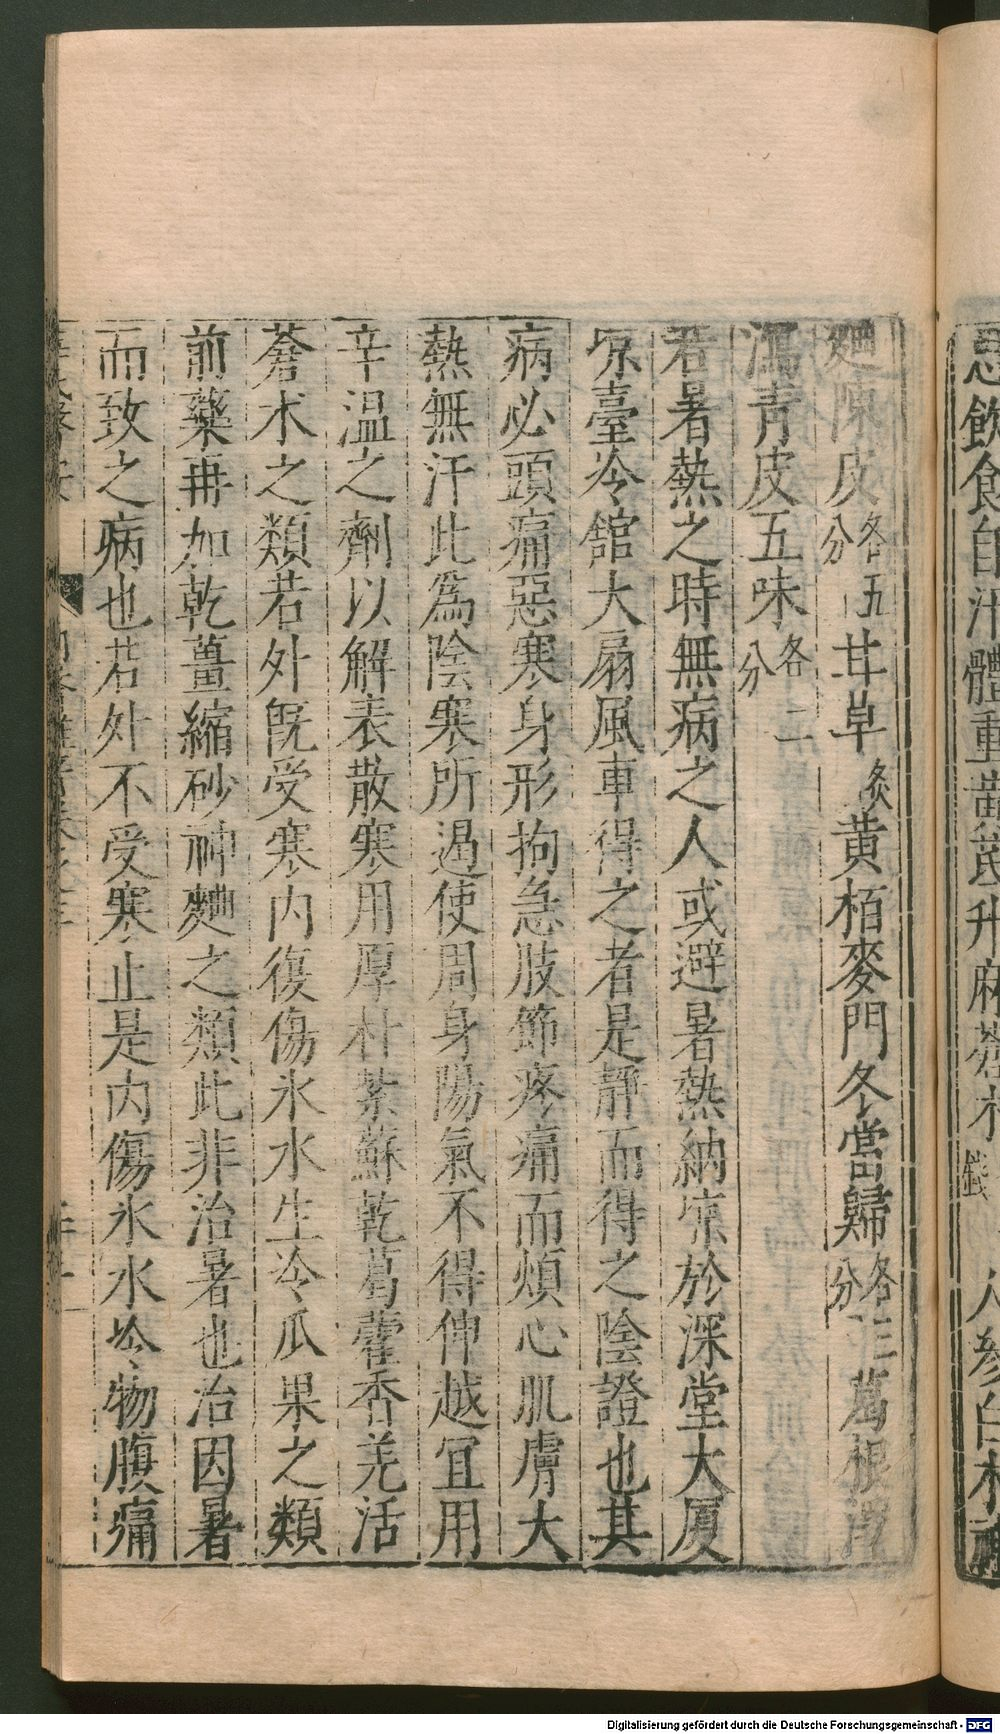 急飲食自汁體重黃芪升麻蒼朮錢 人參白术神
麯陳皮各五分甘草炙黃栢麥門冬當歸各三分葛根澤
瀉青皮五味各二分
若暑熱之時無病之人或避暑熱納凉於深堂大厦
凉臺冷舘大扇風車得之者是靜而得之陰證也其
病必頭痛惡寒身形拘急肢節疼痛而煩心肌膚大
熱無汗此為陰寒所遏使周身陽氣不得伸越宜用
辛温之劑以解表散寒用厚朴紫蘇乾葛藿香羌活
蒼术之類若外既受寒内復傷氷水生冷瓜果之類
前藥再加乾薑縮砂神麯之類此非治暑也治因暑
而致之病也若外不受寒止是内傷氷水冷物腹痛
Digitalisierung gefördert durch die Deutsche Forschungsgemeinschaft - DFG